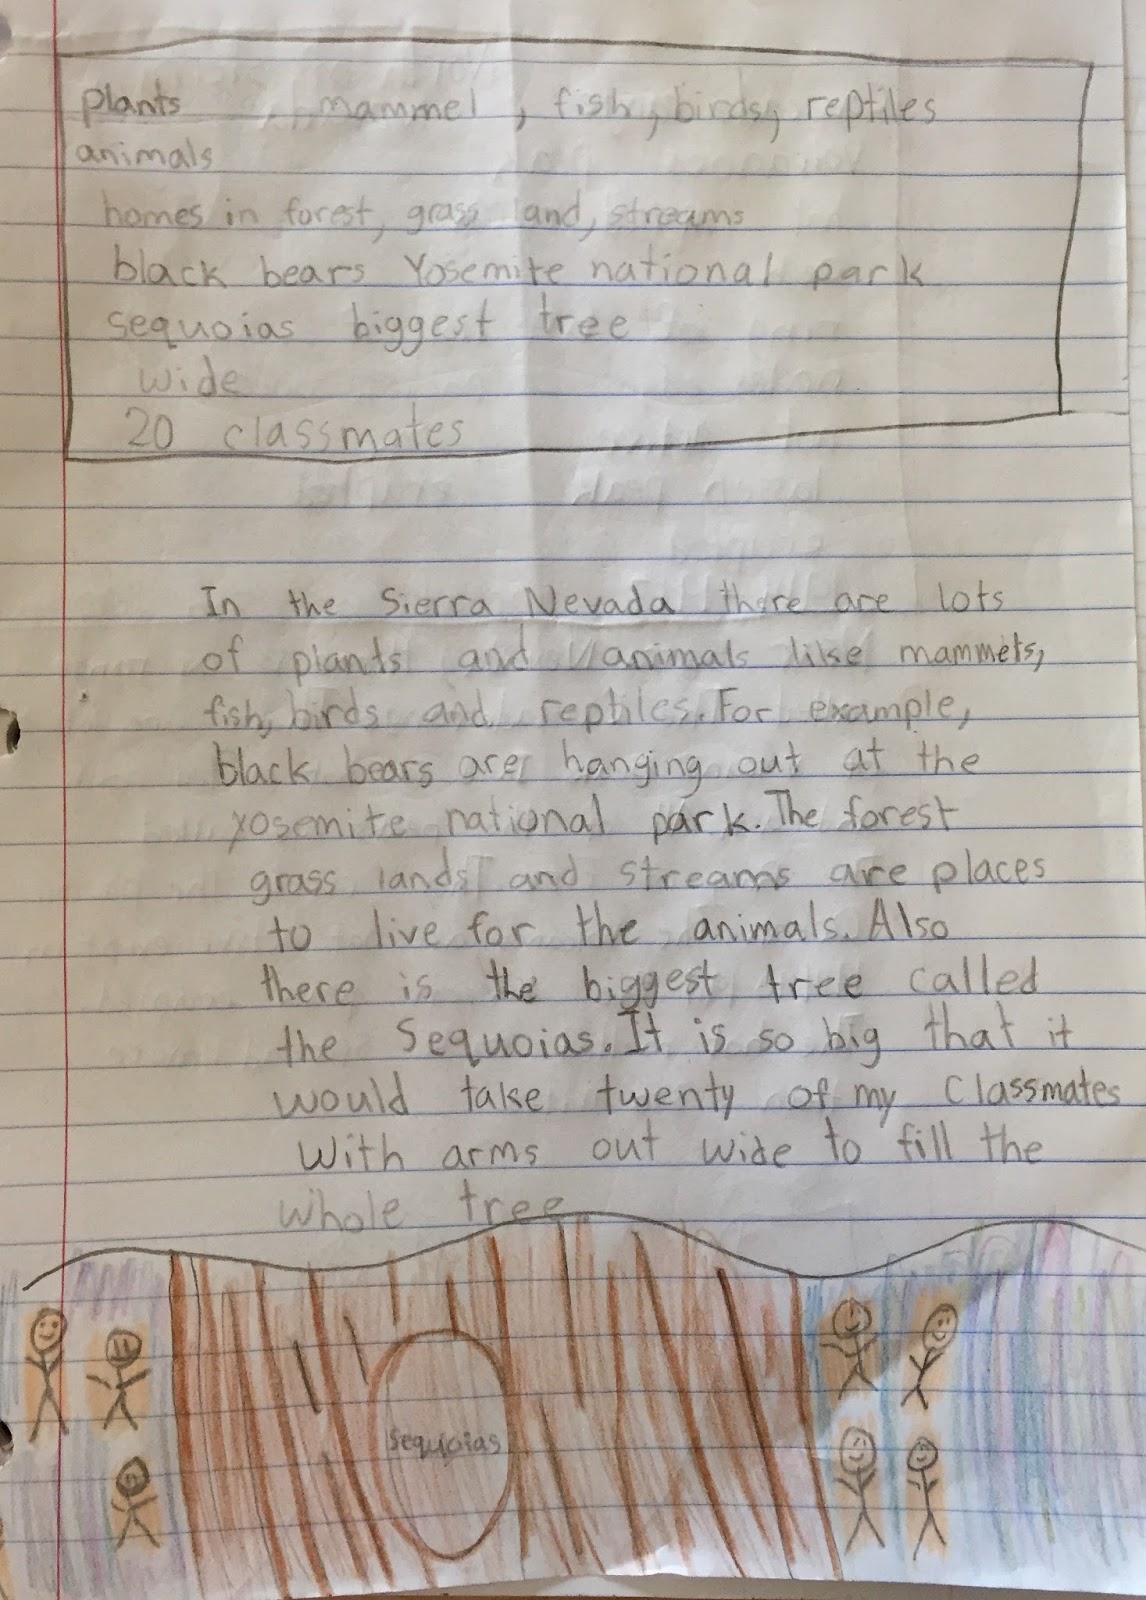 plants , mammel , fish, birds, reptiles
animals
homes in forest, grass and, streams
black bears Yosemite national park
sequoias biggest tree
wide
20 classmates
In the Sierra Nevada there are lots
of plants and animals like mammels,
fish, birds and reptiles. For example,
black bears are hanging out at the
yosemite national park. The forest
grass lands and streams are places
to live for the animals. Also
there is the biggest tree called
the Sequoias. It is so big that it
would take twenty of my Classmates
With arms out wide to fill the
whole tree.
sequoias